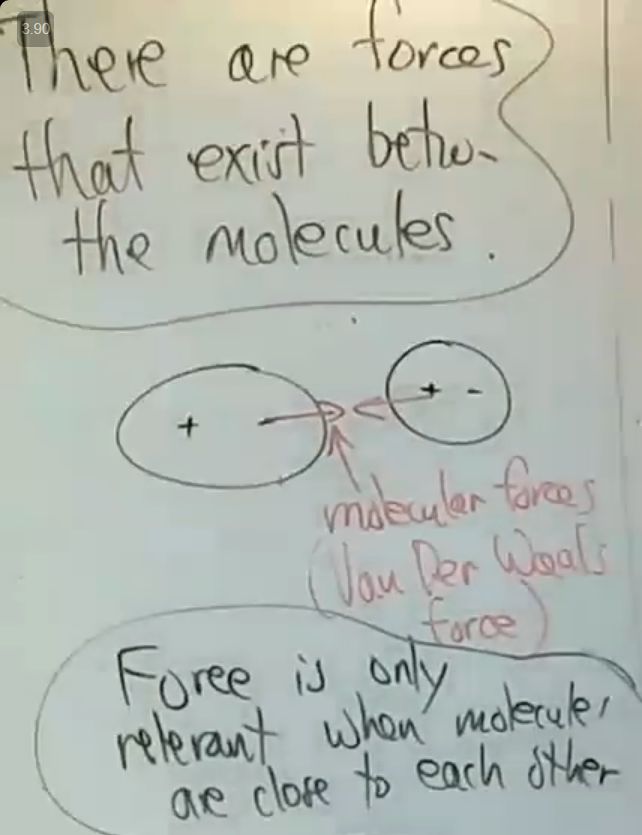 3.90
There are forces
that exist betw.
the molecules.
+ - + -
molecular forces
(Van Der Waals
force)
Force is only
relevant when molecules
are close to each other